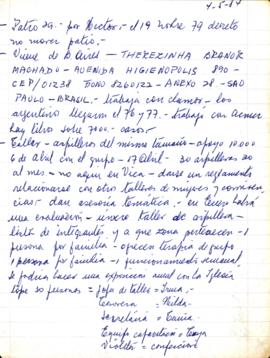 4-5-84
Patio 29 - por Hector - el 19 Nobre 79 decreto
no mover patio -
Viene de B Aires - THEREZINHA BRANDR
MACHADO - AVENIDA HIGIENOPOLIS 890 -
CEP/01238 FONO 8260122 - ANEXO 28 - SAO
PAULO - BRASIL - trabaja con clamor - los
argentino llegaron el 76 y 77 - trabaja con Acnur
hay libro sobre 7000 - casos -
Taller - arpilleras del mismo tamaño - apoyo 10.000
6 de Abril con el grupo - 17 Abril - 20 arpilleras
al mes - no aquí en Vica - darse un reglamento
relacionarse con otro talleres de mujeres y
cias - dan asesoría temática - en Enero habrá
una evaluación - único taller de arpilleras
lista de integrantes y a que zona pertenecen - 1
persona por familia - ofrecen terapia de grupo
1 persona por familia - 1 funcionamiento semanal
se podría hacer una exposición anual con la Iglesia
tope 20 personas = Jefa de taller = Irma -
Tesorera = Hilda -
Secretaria = Tania -
Equipo capacitación =
Violeta = compresión